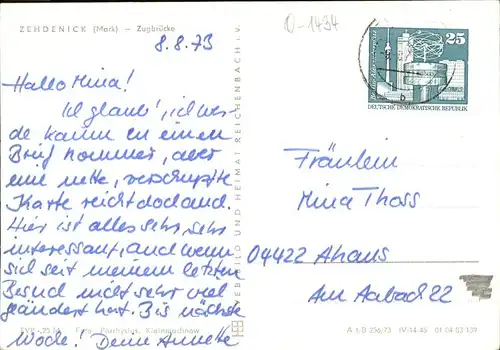 ZEHDENICK (Mark) – Zugbrücke
8.8.73
0-1434
25
DEUTSCHE DEMOKRATISCHE REPUBLIK
Hallo Mina!
Ich glaub', ich wer
de kaum zu einem
Brief kommen, aber
eine nette, verschnupfte
Karte reicht doch auch.
Hier ist alles sehr, sehr
interessant, und wenn
sich seit meinem letzten
Besuch nicht sehr viel
geändert hat. Bis nächste
Woche! Deine Annette
Fräulein
Mina Thoss
04422 Ahaus
Am Aabach 22
BILD UND HEIMAT REICHENBACH i. V.
Kleinmachnow
A 1/B 256/73 IV-14-45 01 04 03 139